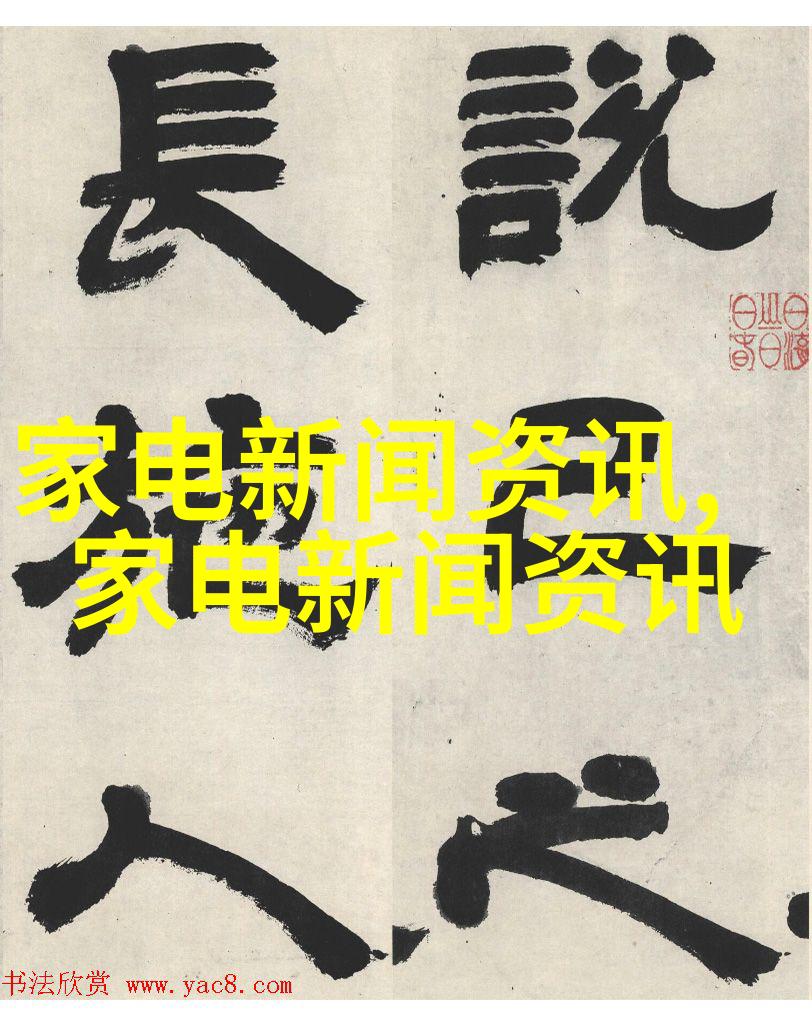 說己之
長施人
家电新闻资讯,
家电新闻资讯
书法欣赏 www.yac8.com